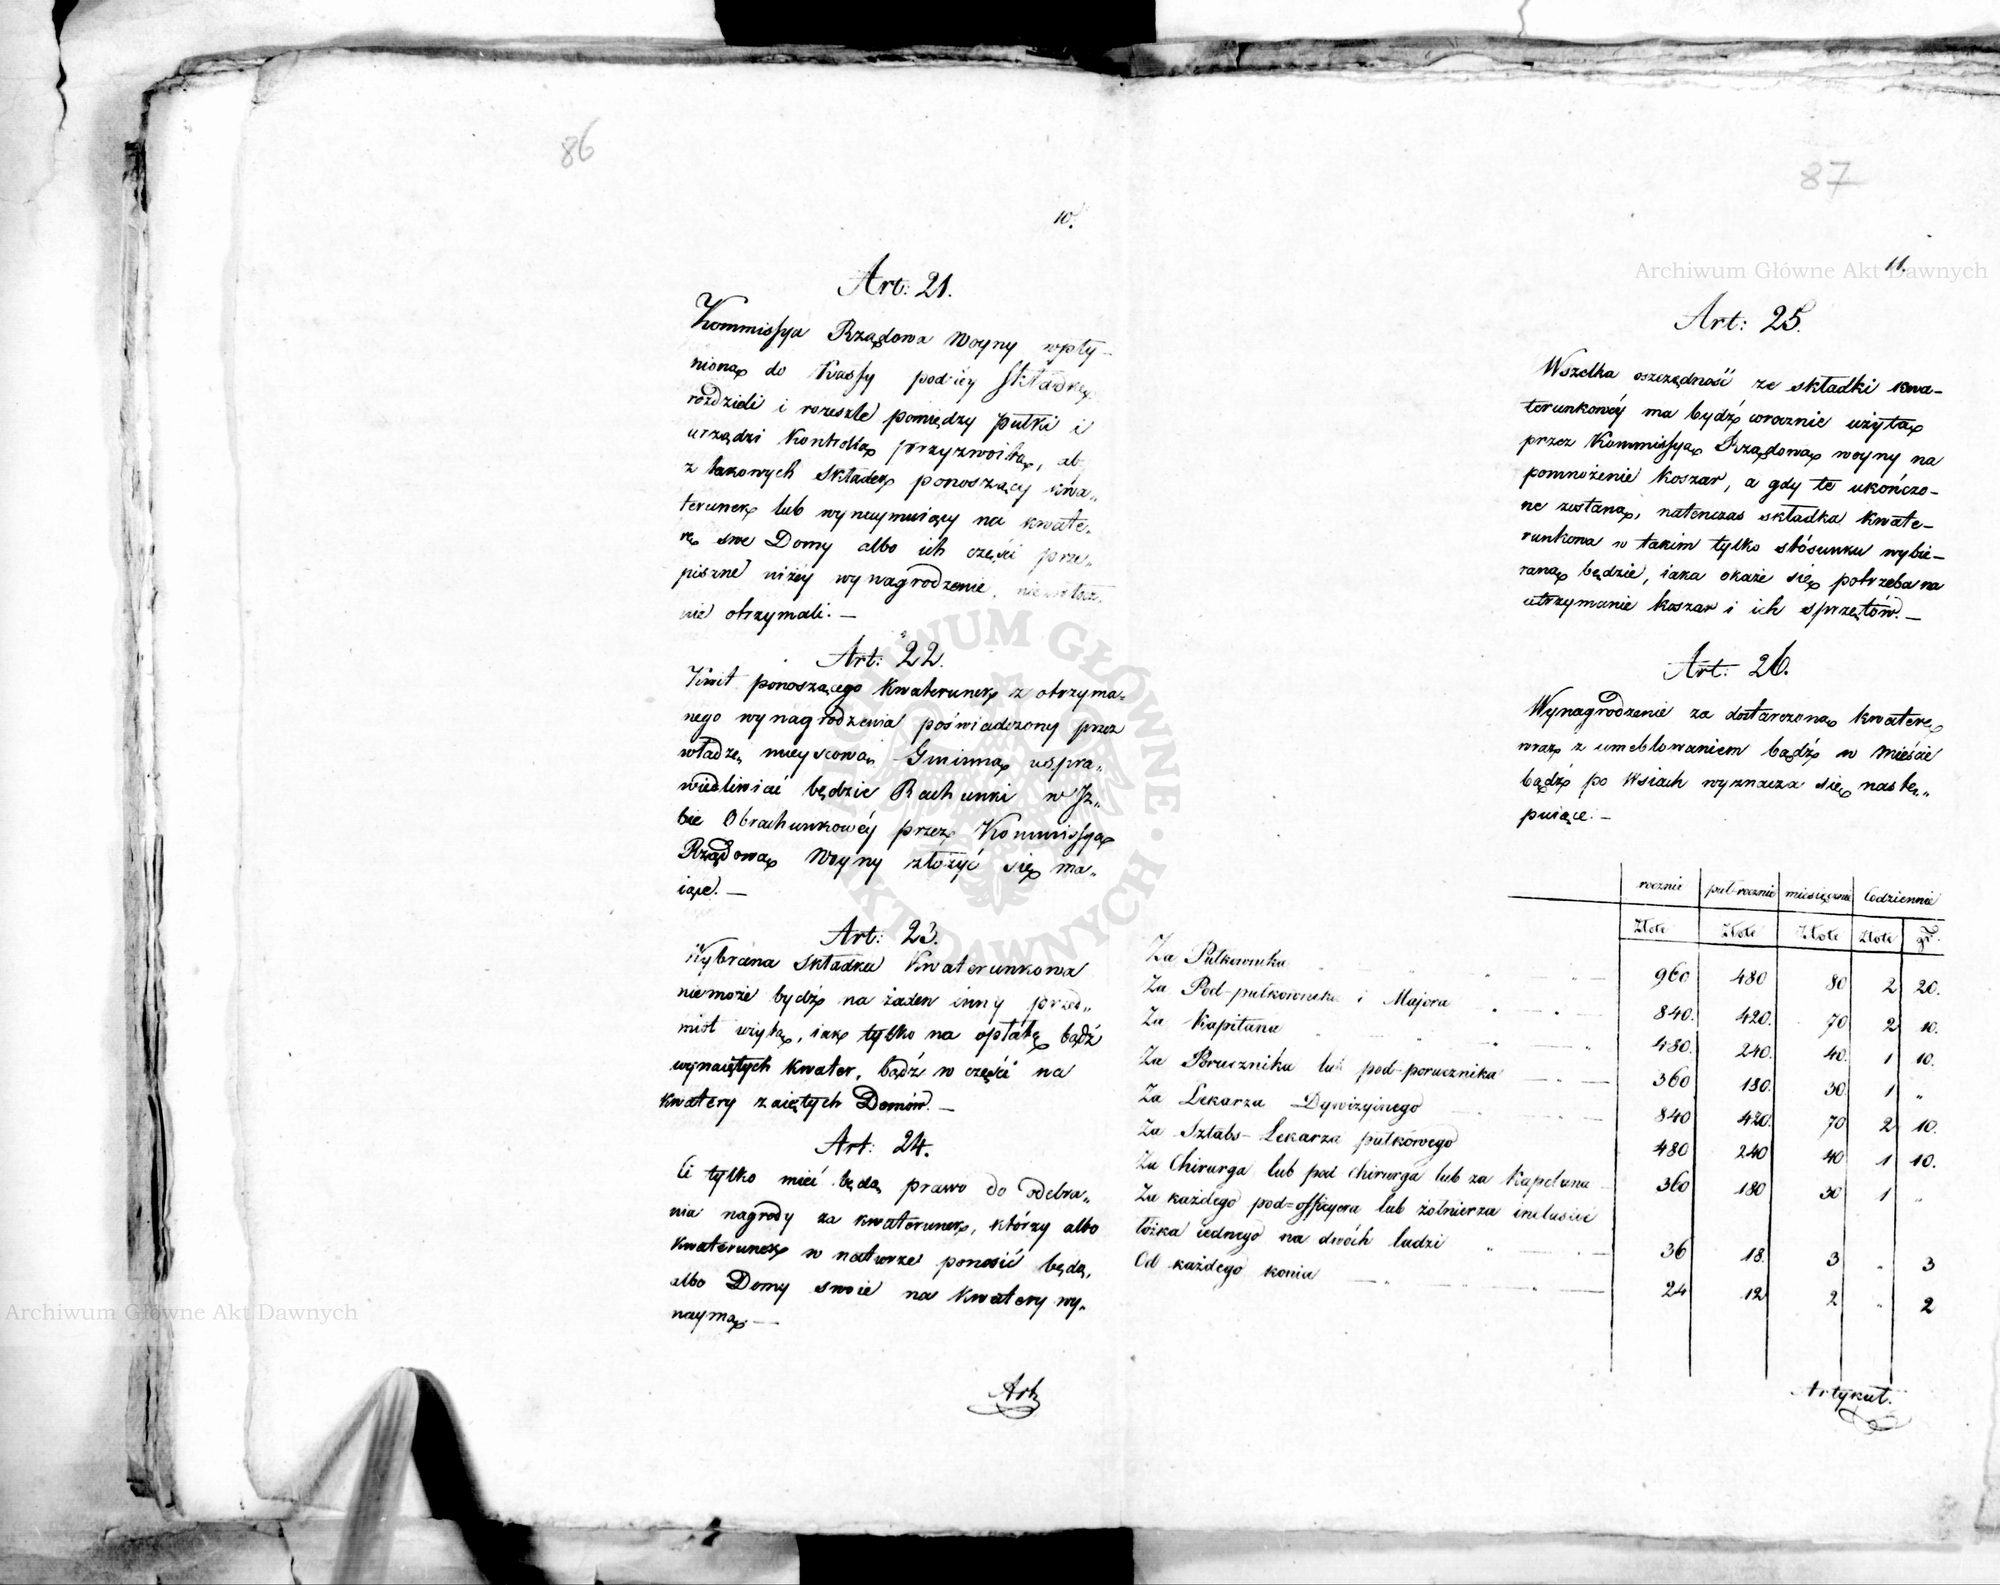 86
10.
Art: 21.
Kommissya Rządowa Woyny wpły-
nioną do Kassy podiéy składkę
rozdzieli i rozeszle pomiędzy pułki i
urządzi Kontrollą przyzwoitą, ab
z takowych składek ponoszący kwa„
terunek lub wynaymuiący na kwate„
rę swe Domy albo ich części prze„
pisane niżéy wynagrodzenie,
nie otrzymali. —
Art: 22.
Kwit ponoszącego Kwaterunek z otrzyma„
nego wynagrodzenia poświadczony przez
władzę mieyscową Gminną uspra„
wiedliwiać będzie Rachunki w Iz„
bie Obrachunkowéy przez Kommissyą
Rządową Woyny złożyć się ma„
iące. —
Art: 23.
Wybrana składka Kwaterunkowa
niemoże bydź na żaden inny przed„
miot użytą, iak tylko na opłatę bądź
wynaiętych kwater, bądź w części na
kwatery zaiętych Domów. —
Art: 24.
Ci tylko mieć będą prawo do odebra„
nia nagrody za kwaterunek, którzy albo
kwaterunek w naturze ponosić będą,
albo Domy swoie na kwatery wy„
naymą. —
Art
87
11.
Art: 25.
Wszelka oszczędność ze składki kwa-
terunkowéy ma bydź corocznie użytą
przez Kommissyą Rządową woyny na
pomnożenie koszar, a gdy te ukończo-
ne zostaną, natenczas składka kwate-
runkowa w takim tylko stósunku wybie-
raną będzie, iaka okaże się potrzeba na
utrzymanie koszar i ich sprzętów. —
Art: 26.
Wynagrodzenie za dostarczoną kwaterę
wraz z umeblowaniem bądź w mieście
bądź po Wsiach wyznacza się nastę„
puiące. —
rocznie pół-rocznie miesięcznie Codziennie
Złote Złote Złote Złote gr.
Za Pułkownika 960 480 80 2 20.
Za Pod-pułkownika i Majora 840. 420. 70 2 10.
Za Kapitana 480. 240. 40. 1 10.
Za Porucznika lub pod-porucznika 360 180. 30 1 „
Za Lekarza Dywizyinego 840 420. 70 2 10.
Za Sztabs-Lekarza pułkowego 480 240 40 1 10.
Za Chirurga lub pod Chirurga lub za Kapelana 360 180 30 1 „
Za każdego pod=officyera lub żołnierza inclusive
łóżka iednego na dwóch ludzi 36 18. 3 „ 3
Od każdego konia 24 12 2 „ 2
Artykuł.
Archiwum Główne Akt Dawnych
Archiwum Główne Akt Dawnych
ARCHIWUM GŁÓWNE · AKT DAWNYCH ·